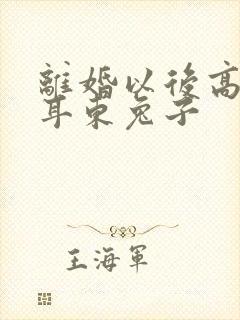 離婚以後高
耳東兔子
王海軍